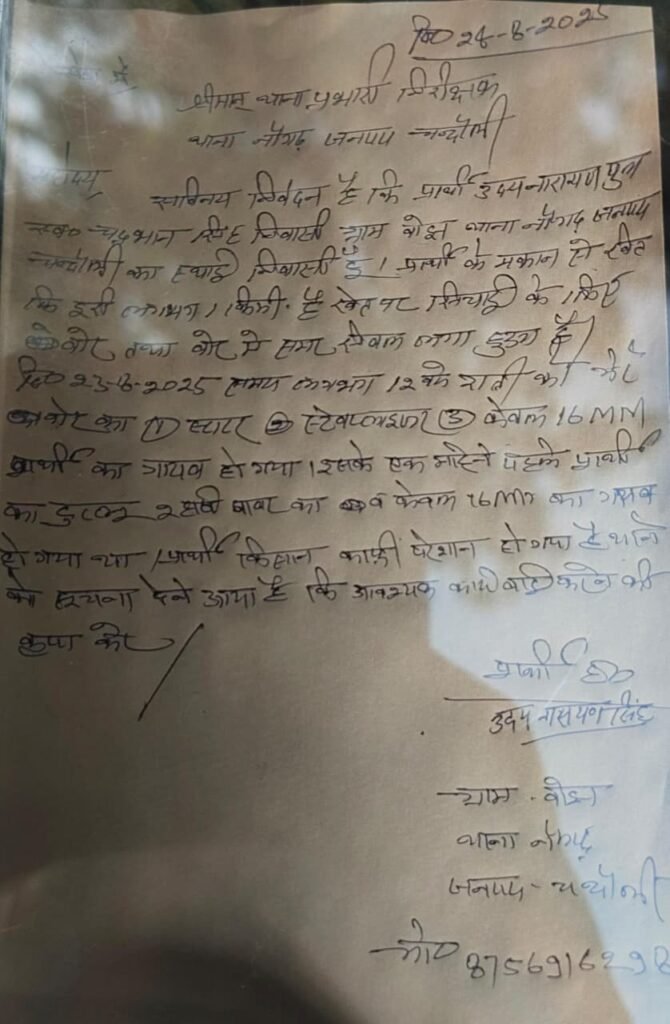 दि० 24-8-2025
सेवा में
श्रीमान् थाना प्रभारी निरीक्षक
थाना नौगढ़ जनपद चन्दौली
महोदय
सविनय निवेदन है कि प्रार्थी उदयनारायण पुत्र
स्व० चन्द्रभान सिंह निवासी ग्राम बोझ थाना नौगढ़ जनपद
चन्दौली का स्थाई निवासी हूँ। प्रार्थी के मकान से खेत
कि दूरी लगभग 1 किमी. है खेत पर सिंचाई के लिए
बोर तथा बोर में समरसेबल लगा हुआ है।
दि० 23-8-2025 समय लगभग 12 बजे रात्री को मेरे
बोर का (1) स्टाटर (2) स्टेपलाइजर (3) केबल 16 MM
प्रार्थी का गायब हो गया। इसके एक महिने पहले प्रार्थी
का टुल्लू 2 हार्स पावर का व केबल 16 MM का गायब
हो गया था। प्रार्थी किसान काफी परेशान हो गया है थाने
को सूचना देने आया है कि आवश्यक कार्यवाही करने की
कृपा करें
प्रार्थी ह०
उदय नारायण सिंह
ग्राम - बोझ
थाना नौगढ़
जनपद - चन्दौली
मो० 8756916298